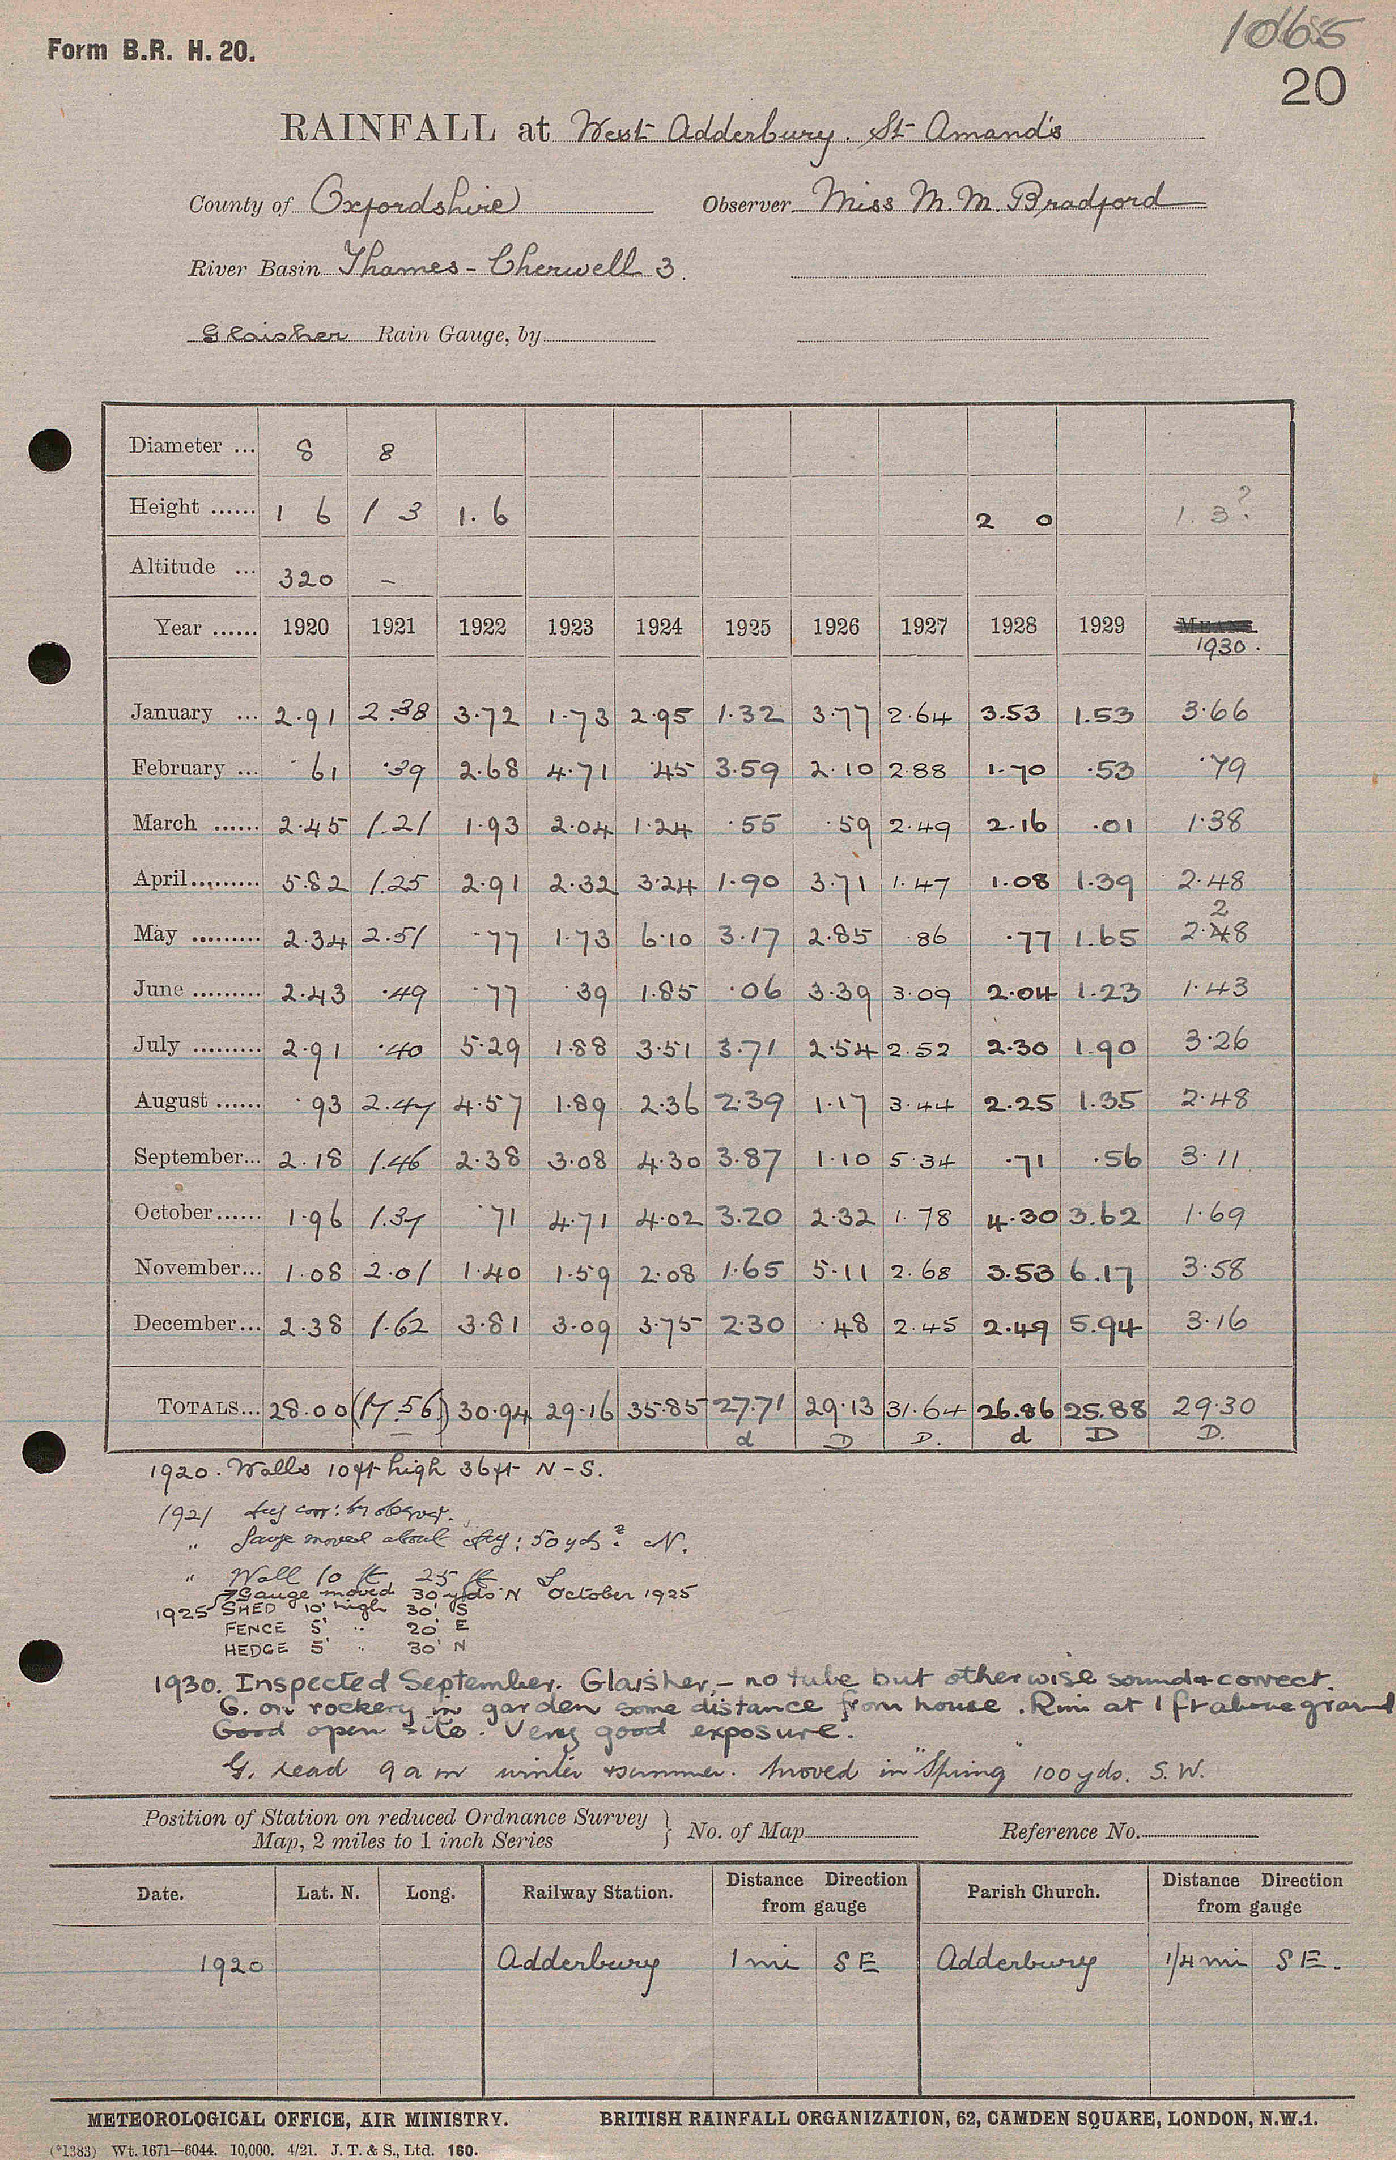 Form B.R. H. 20.
1065
20
RAINFALL at West Adderbury. St Amand's
County of Oxfordshire Observer Miss M. M. Bradford
River Basin Thames - Cherwell 3.
Glaisher Rain Gauge, by
Diameter ... 8 8
Height ...... 1 6 1 3 1. 6 2 0 1. 3?
Altitude ... 320 -
Year ...... 1920 1921 1922 1923 1924 1925 1926 1927 1928 1929 1930.
January ... 2.91 2.38 3.72 1.73 2.95 1.32 3.77 2.64 3.53 1.53 3.66
February ... .61 .39 2.68 4.71 .45 3.59 2.10 2.88 1.70 .53 .79
March ...... 2.45 1.21 1.93 2.04 1.24 .55 .59 2.49 2.16 .01 1.38
April......... 5.82 1.25 2.91 2.32 3.24 1.90 3.71 1.47 1.08 1.39 2.48
May ......... 2.34 2.51 .77 1.73 6.10 3.17 2.85 .86 .77 1.65 2.28
June ......... 2.43 .49 .77 .39 1.85 .06 3.39 3.09 2.04 1.23 1.43
July ......... 2.91 .40 5.29 1.88 3.51 3.71 2.54 2.52 2.30 1.90 3.26
August ...... .93 2.47 4.57 1.89 2.36 2.39 1.17 3.44 2.25 1.35 2.48
September... 2.18 1.46 2.38 3.08 4.30 3.87 1.10 5.34 .71 .56 3.11
October...... 1.96 1.37 .71 4.71 4.02 3.20 2.32 1.78 4.30 3.62 1.69
November... 1.08 2.01 1.40 1.59 2.08 1.65 5.11 2.68 3.53 6.17 3.58
December... 2.38 1.62 3.81 3.09 3.75 2.30 .48 2.45 2.49 5.94 3.16
TOTALS... 28.00 (17.56) 30.94 29.16 35.85 27.71 29.13 31.64 26.86 25.88 29.30
d D D. d D D.
1920. Walls 10ft high 36ft N-S.
1921 corr: by observer.
" Gauge moved about 50 yds? N.
" Wall 10 ft 25 ft S
Gauge moved 30 yds N October 1925
1925 SHED 10' high 30' S
FENCE 5' " 20' E
HEDGE 5' " 30' N
1930. Inspected September. Glaisher,- no tube but otherwise sound & correct.
G. on rockery in garden some distance from house. Rim at 1 ft above ground
Good open site. Very good exposure.
G. read 9 a m winter & summer. Moved in "Spring" 100 yds. S. W.
Position of Station on reduced Ordnance Survey Map, 2 miles to 1 inch Series } No. of Map Reference No.
Date. Lat. N. Long. Railway Station. Distance Direction from gauge Parish Church. Distance Direction from gauge
1920 Adderbury 1 mi SE Adderbury 1/4 mi SE.
METEOROLOGICAL OFFICE, AIR MINISTRY. BRITISH RAINFALL ORGANIZATION, 62, CAMDEN SQUARE, LONDON, N.W.1.
(*1383) Wt. 1671—6044. 10,000. 4/21. J. T. & S., Ltd. 160.